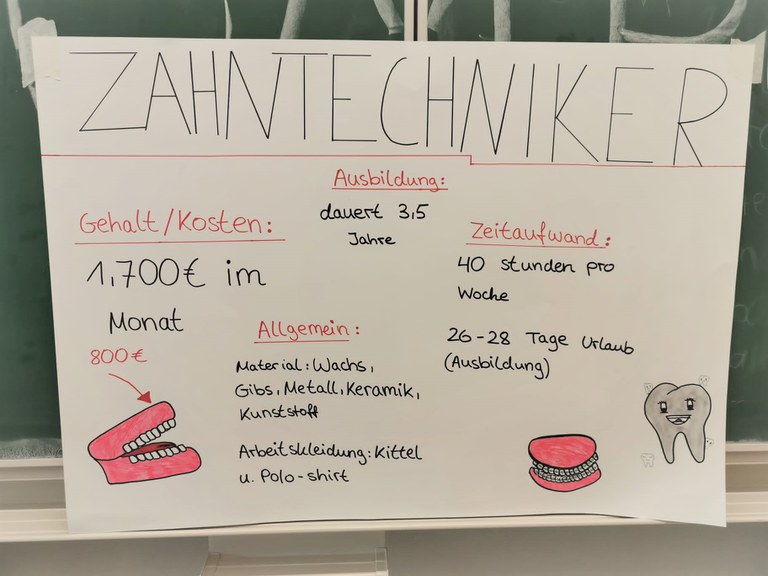 ZAHNTECHNIKER
Ausbildung:
dauert 3,5
Jahre
Gehalt/Kosten:
1,700€ im
Monat
800€
Zeitaufwand:
40 stunden pro
Woche
26-28 Tage Urlaub
(Ausbildung)
Allgemein:
Material: Wachs,
Gibs, Metall, Keramik,
Kunststoff
Arbeitskleidung: Kittel
u. Polo-shirt